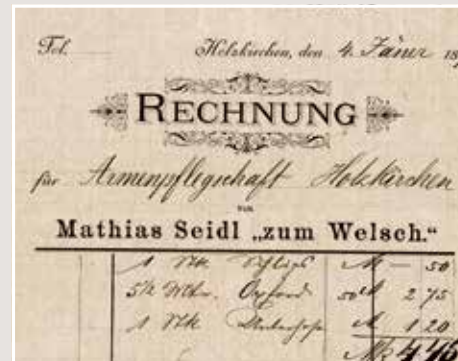 Fol.
Holzkirchen, den 4. Jäner 18
RECHNUNG
für Armenpflegschaft Holzkirchen
von
Mathias Seidl „zum Welsch.“
1 Stk Schlips M — 50
5½ Mtr. Oxford 50 M 2 75
1 Stk M 1 20
M 4 45